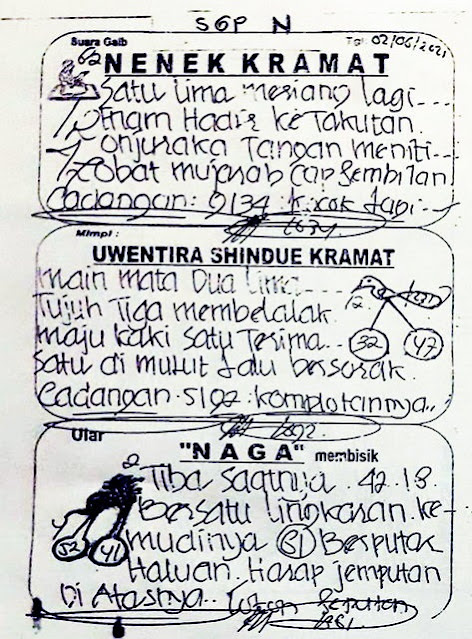 SGP N
Suara Gaib
Tgl. 02/06/2021
62
NENEK KRAMAT
Satu lima meriang lagi...
Enam Hadir ke Takutan.
Tangan meniti...
obat mujarab Cap Sembilan
Cadangan: 9134: Kocok
Mimpi:
UWENTIRA SHINDUE KRAMAT
main mata Dua lima
Tujuh Tiga membelalak
12
maju kaki satu Terima...
32 47
satu di mulut lalu bersorak.
Cadangan. 5192: komplotannya..
Ular
"NAGA" membisik
2
Tiba saatnya. 42.18.
Bersatu lingkaran. ke-
52 41
mudinya 81 Berputar
Haluan. Harap jemputan
Di Atasnya..